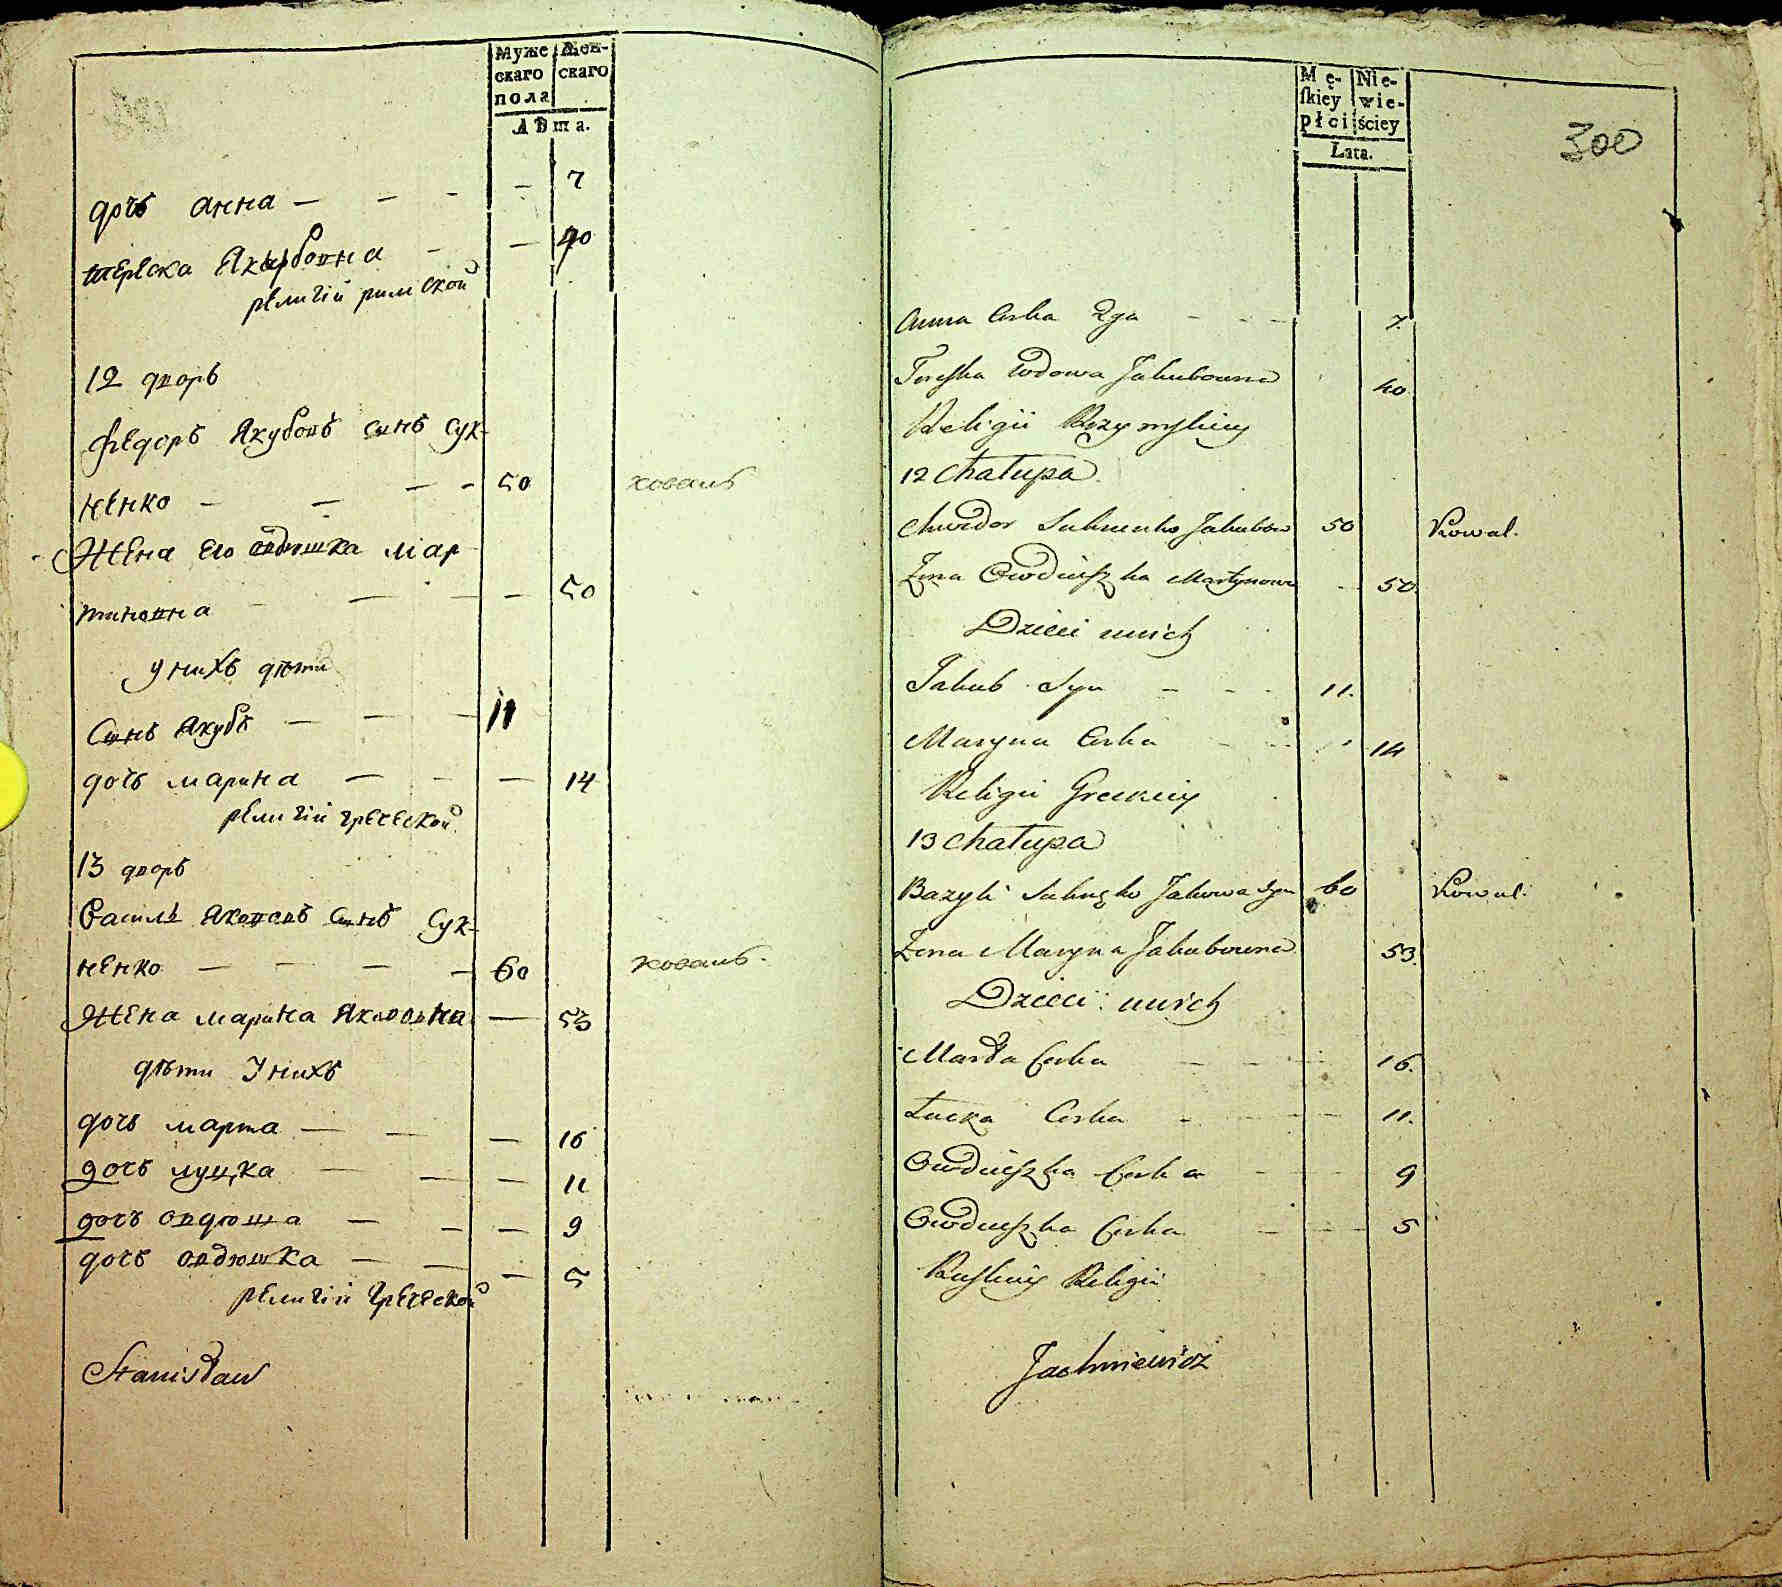 Муже Жен-
скаго скаго
пола
Лѣта.
дочь анна — — — — 7
тереска Якубовна — — 40
религіи римской
12 дворъ
Федоръ Якубовъ сынъ Сук-
ненко — — — — 50 коваль
Жена его овдюшка мар
тиновна — — — — 50
у нихъ дѣти
Сынъ Якубъ — — — 11
дочь марина — — — 14
религіи греческой
13 дворъ
Василь Яковсвъ Сынъ Сук-
ненко — — — — 60 коваль.
Жена марина Якововна — 53
дѣти У нихъ
дочь марта — — — 16
дочь луцка — — — 11
дочь овдюша — — — 9
дочь овдюшка — — — 5
религіи Греческой
Stanisław
Mę- Nie-
skiey wie-
płci ściey
Lata.
300
Anna Corka 2ga - - - 7.
Tereska Wdowa Jakubowna 40
Religii Rzymskiey
12 Chałupa
Chwedor Suknenko Jakubow 50 Kowal.
Zona Owdiuszka Martynowa - 50.
Dzieci unich
Jakub Syn - - - 11.
Maryna Corka - - - 14
Religii Greckiey
13 Chałupa
Bazyli Jakowa Syn 60 Kowal.
Zona Maryna Jakubowna 53.
Dzieci unich
Marta Corka - - - 16.
Łucka Corka - - - 11.
Owdiuszka Corka - - 9
Owdiuszka Corka - - - 5
Ruskiey Religii
Jachniewicz